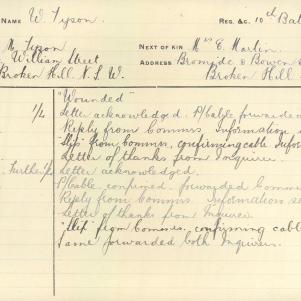 NAME W. Tyson REG. &C. 10th Bat
M Tyson NEXT OF KIN Mrs E. Martin
William Street ADDRESS Bromide & Bowen S
Broken Hill. N.S.W. Broken Hill
"Wounded"
1/4 Letter acknowledged. P/Cable forwarded
Reply from Commrs Information
"Slip" from Commrs. confirming cable Infor
Letter of thanks from Inquirer.
Further Letter acknowledged.
P/Cable confirmed. forwarded Comm
Reply from Commrs. Information se
Letter of thanks from Inquirer
"Slip" from Commrs. confirming cabl
Same forwarded both Inquirers.